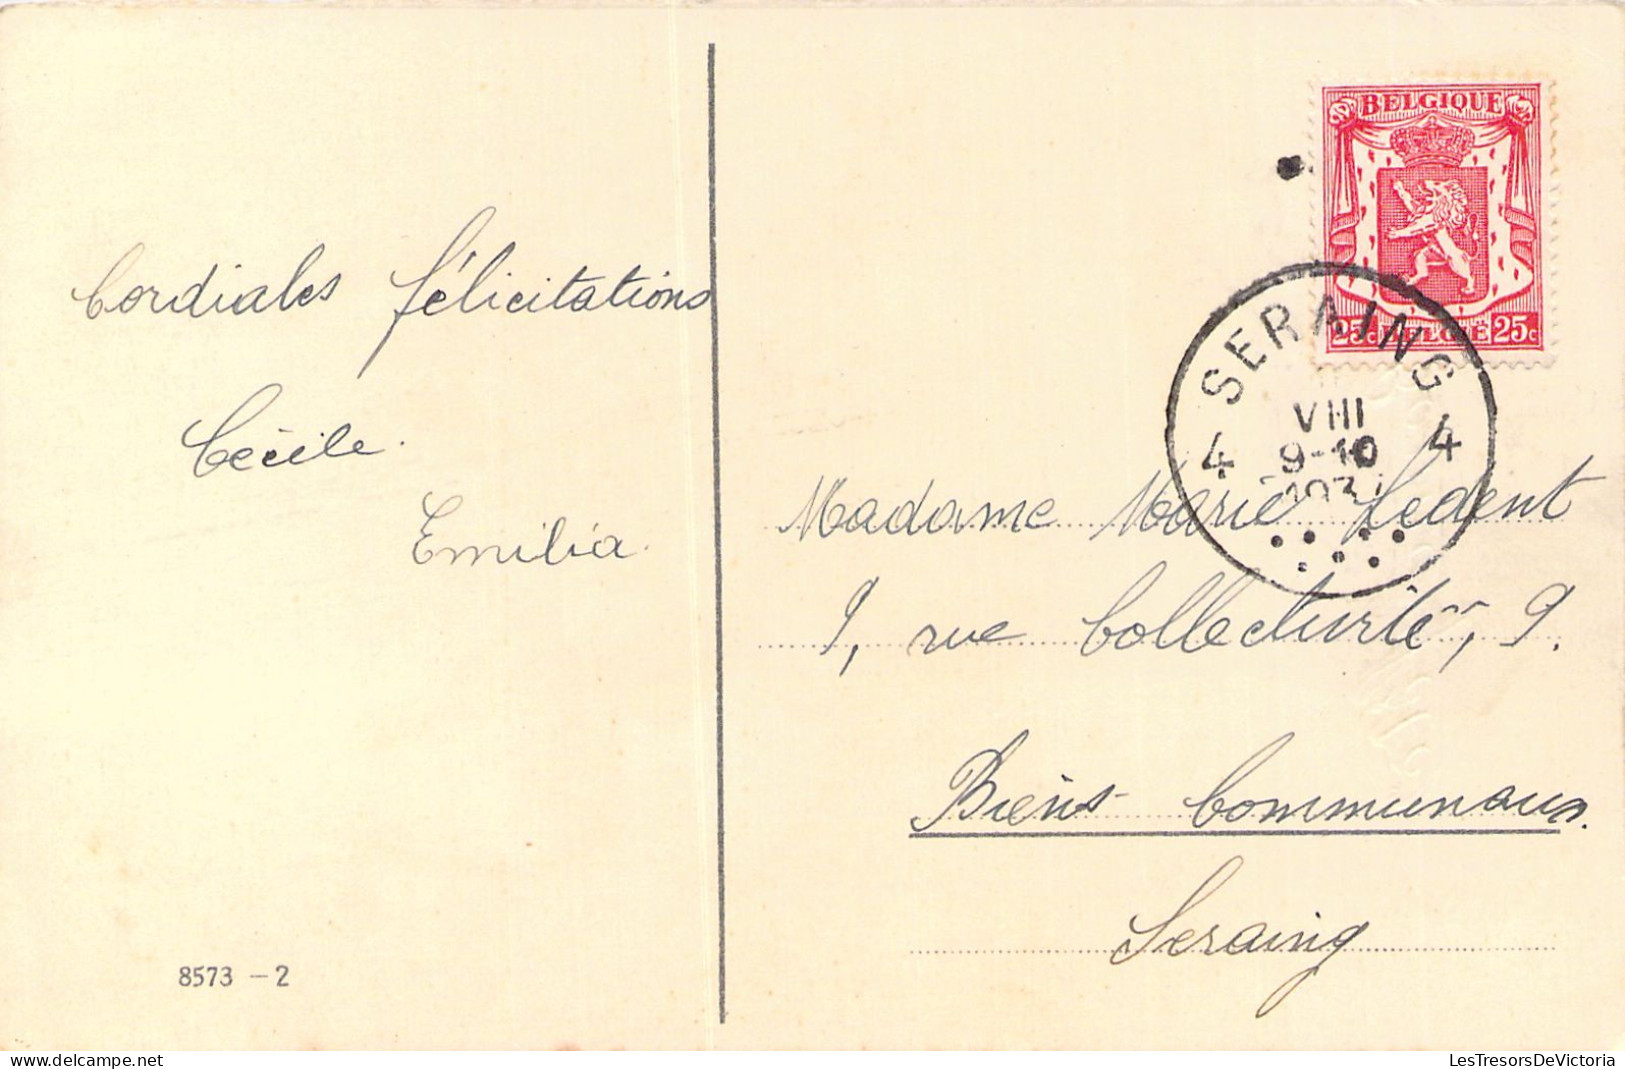 Cordiales félicitations
Cécile.
Emilia.
8573 - 2
BELGIQUE
25c BELGIË 25c
SERAING
4 4
VIII
9-10
Madame Marie Ledent
9, rue Collectivité, 9.
Biens Communaux.
Seraing
delcampe.net
LesTresorsDeVictoria